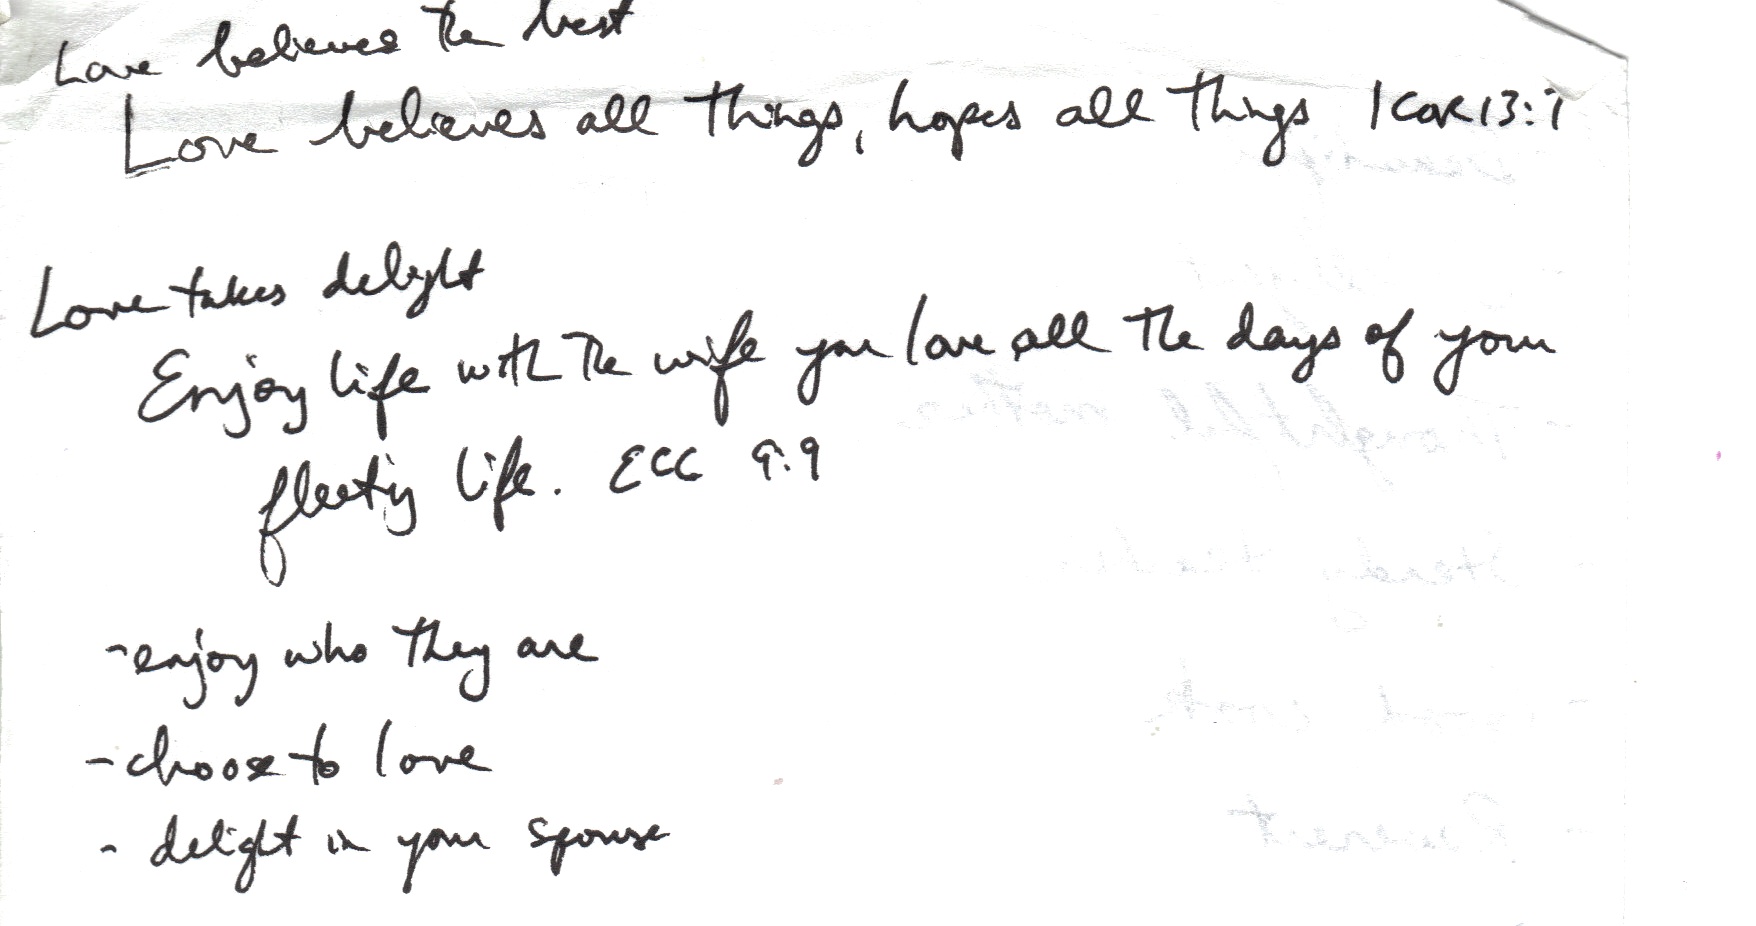 Love believes the best
Love believes all things, hopes all things 1 COR 13:7
Love takes delight
Enjoy life with the wife you love all the days of your
fleeting life. ECC 9:9
- enjoy who they are
- choose to love
- delight in your spouse